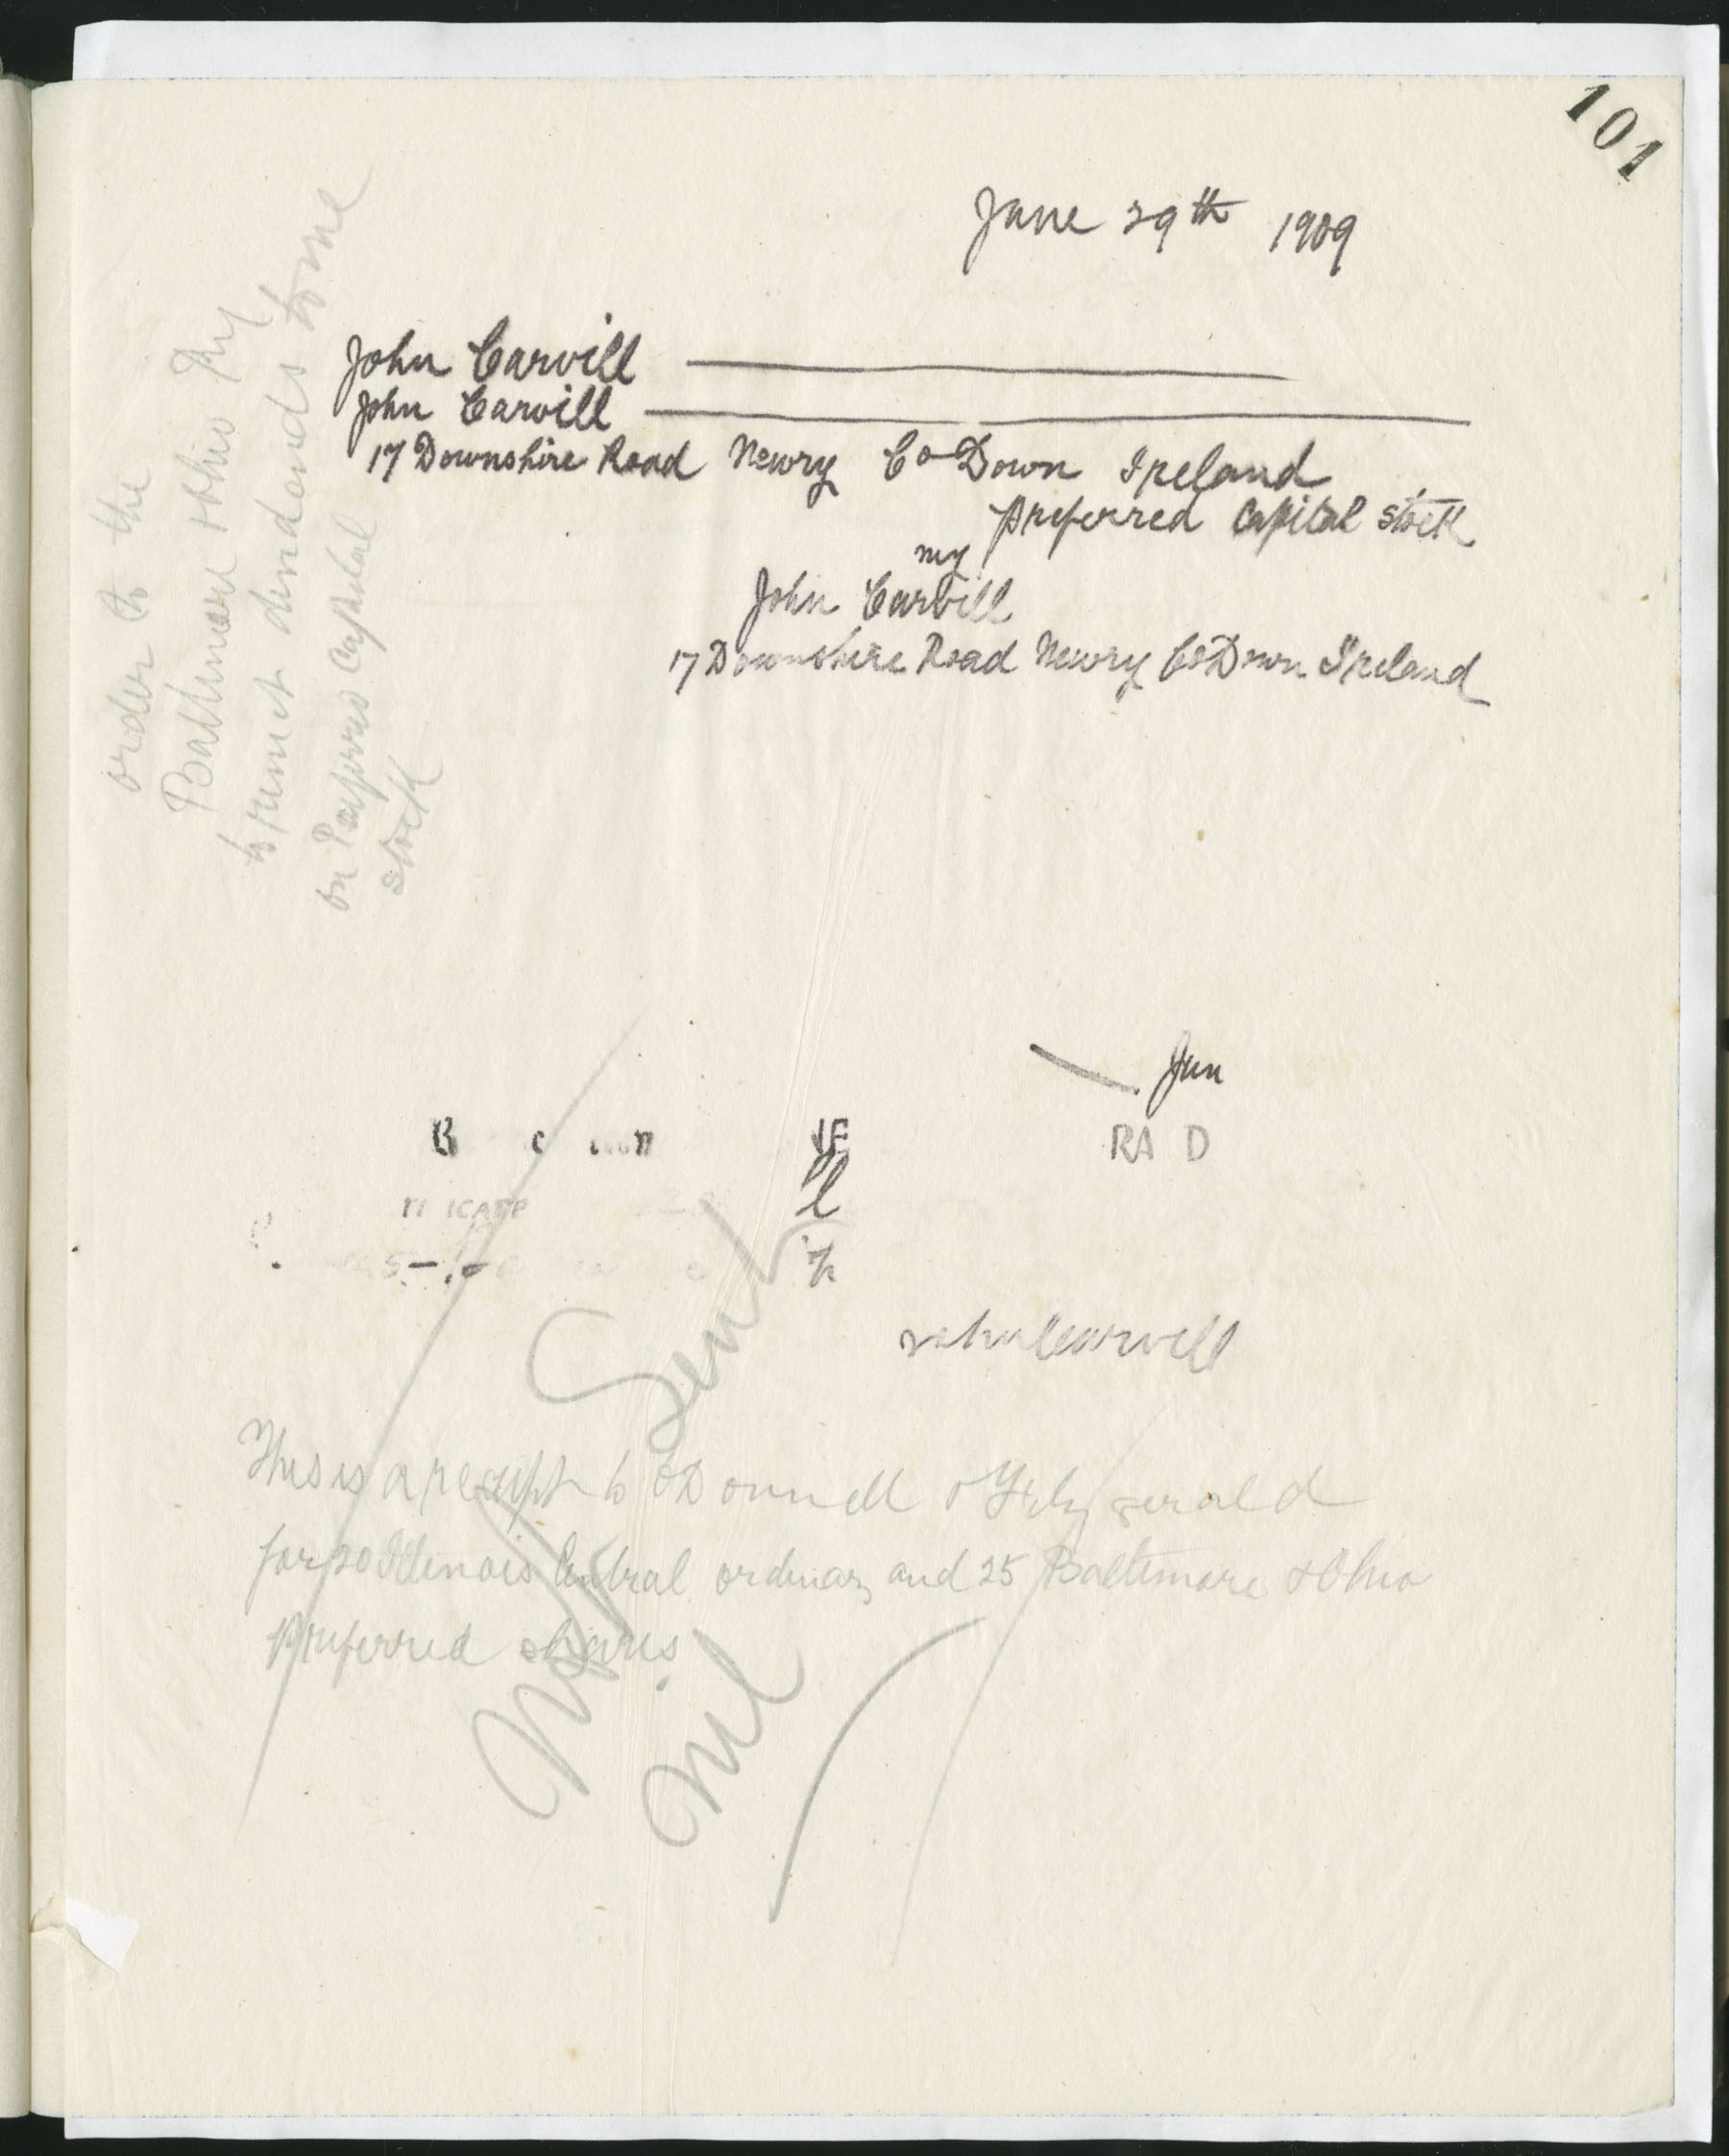 101
June 29th 1909
John Carvill
John Carvill
17 Downshire Road Newry Co Down Ireland
preferred capital stock
my
John Carvill
17 Downshire Road Newry Co Down Ireland
order to the
Baltimore & Ohio Ry
to remit dividends to me
on Preferred Capital
stock
Jun
RA D
John Carvill
Sent
This is a receipt to O'Donnell & Fitzgerald
for 20 Illinois Central ordinary and 25 Baltimore & Ohio
Preferred shares
nil